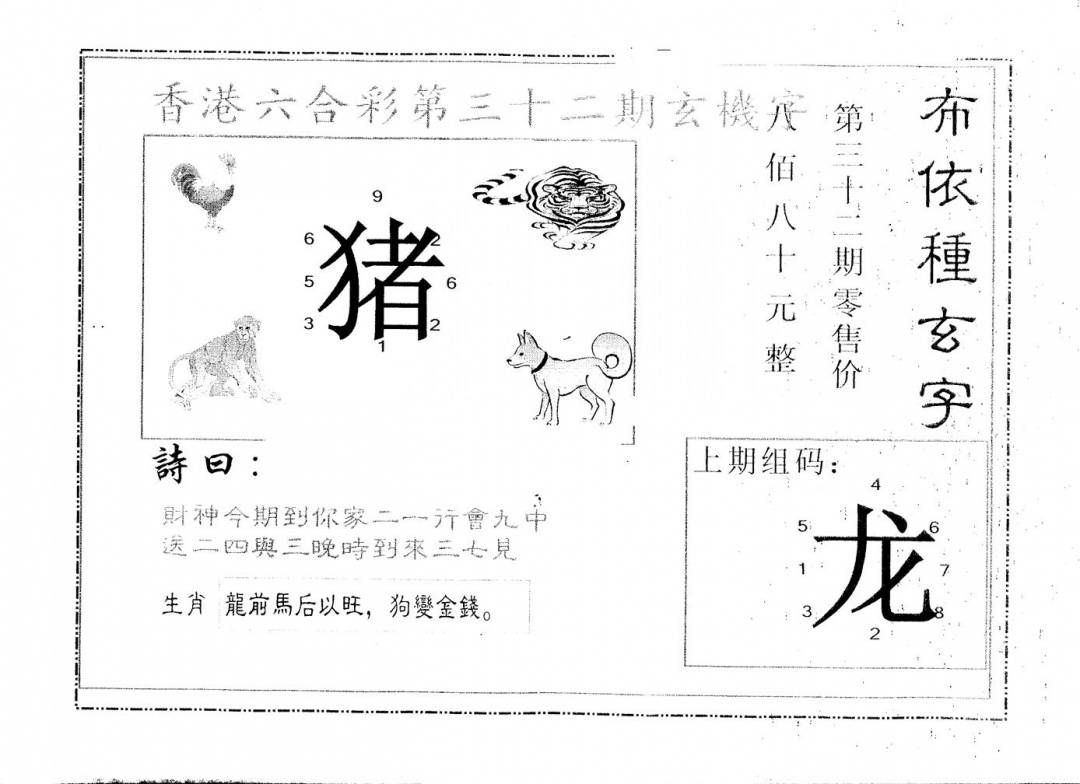 香港六合彩第三十二期玄機字
布依種玄字
第三十二期零售价
八佰八十元整
9
6 2
猪
5 6
3 2
1
詩曰：
財神今期到你家二一行會九中
送二四與三晚時到來三七見
生肖 龍前馬后以旺，狗變金錢。
上期组码：
4
5 6
龙
1 7
3 8
2